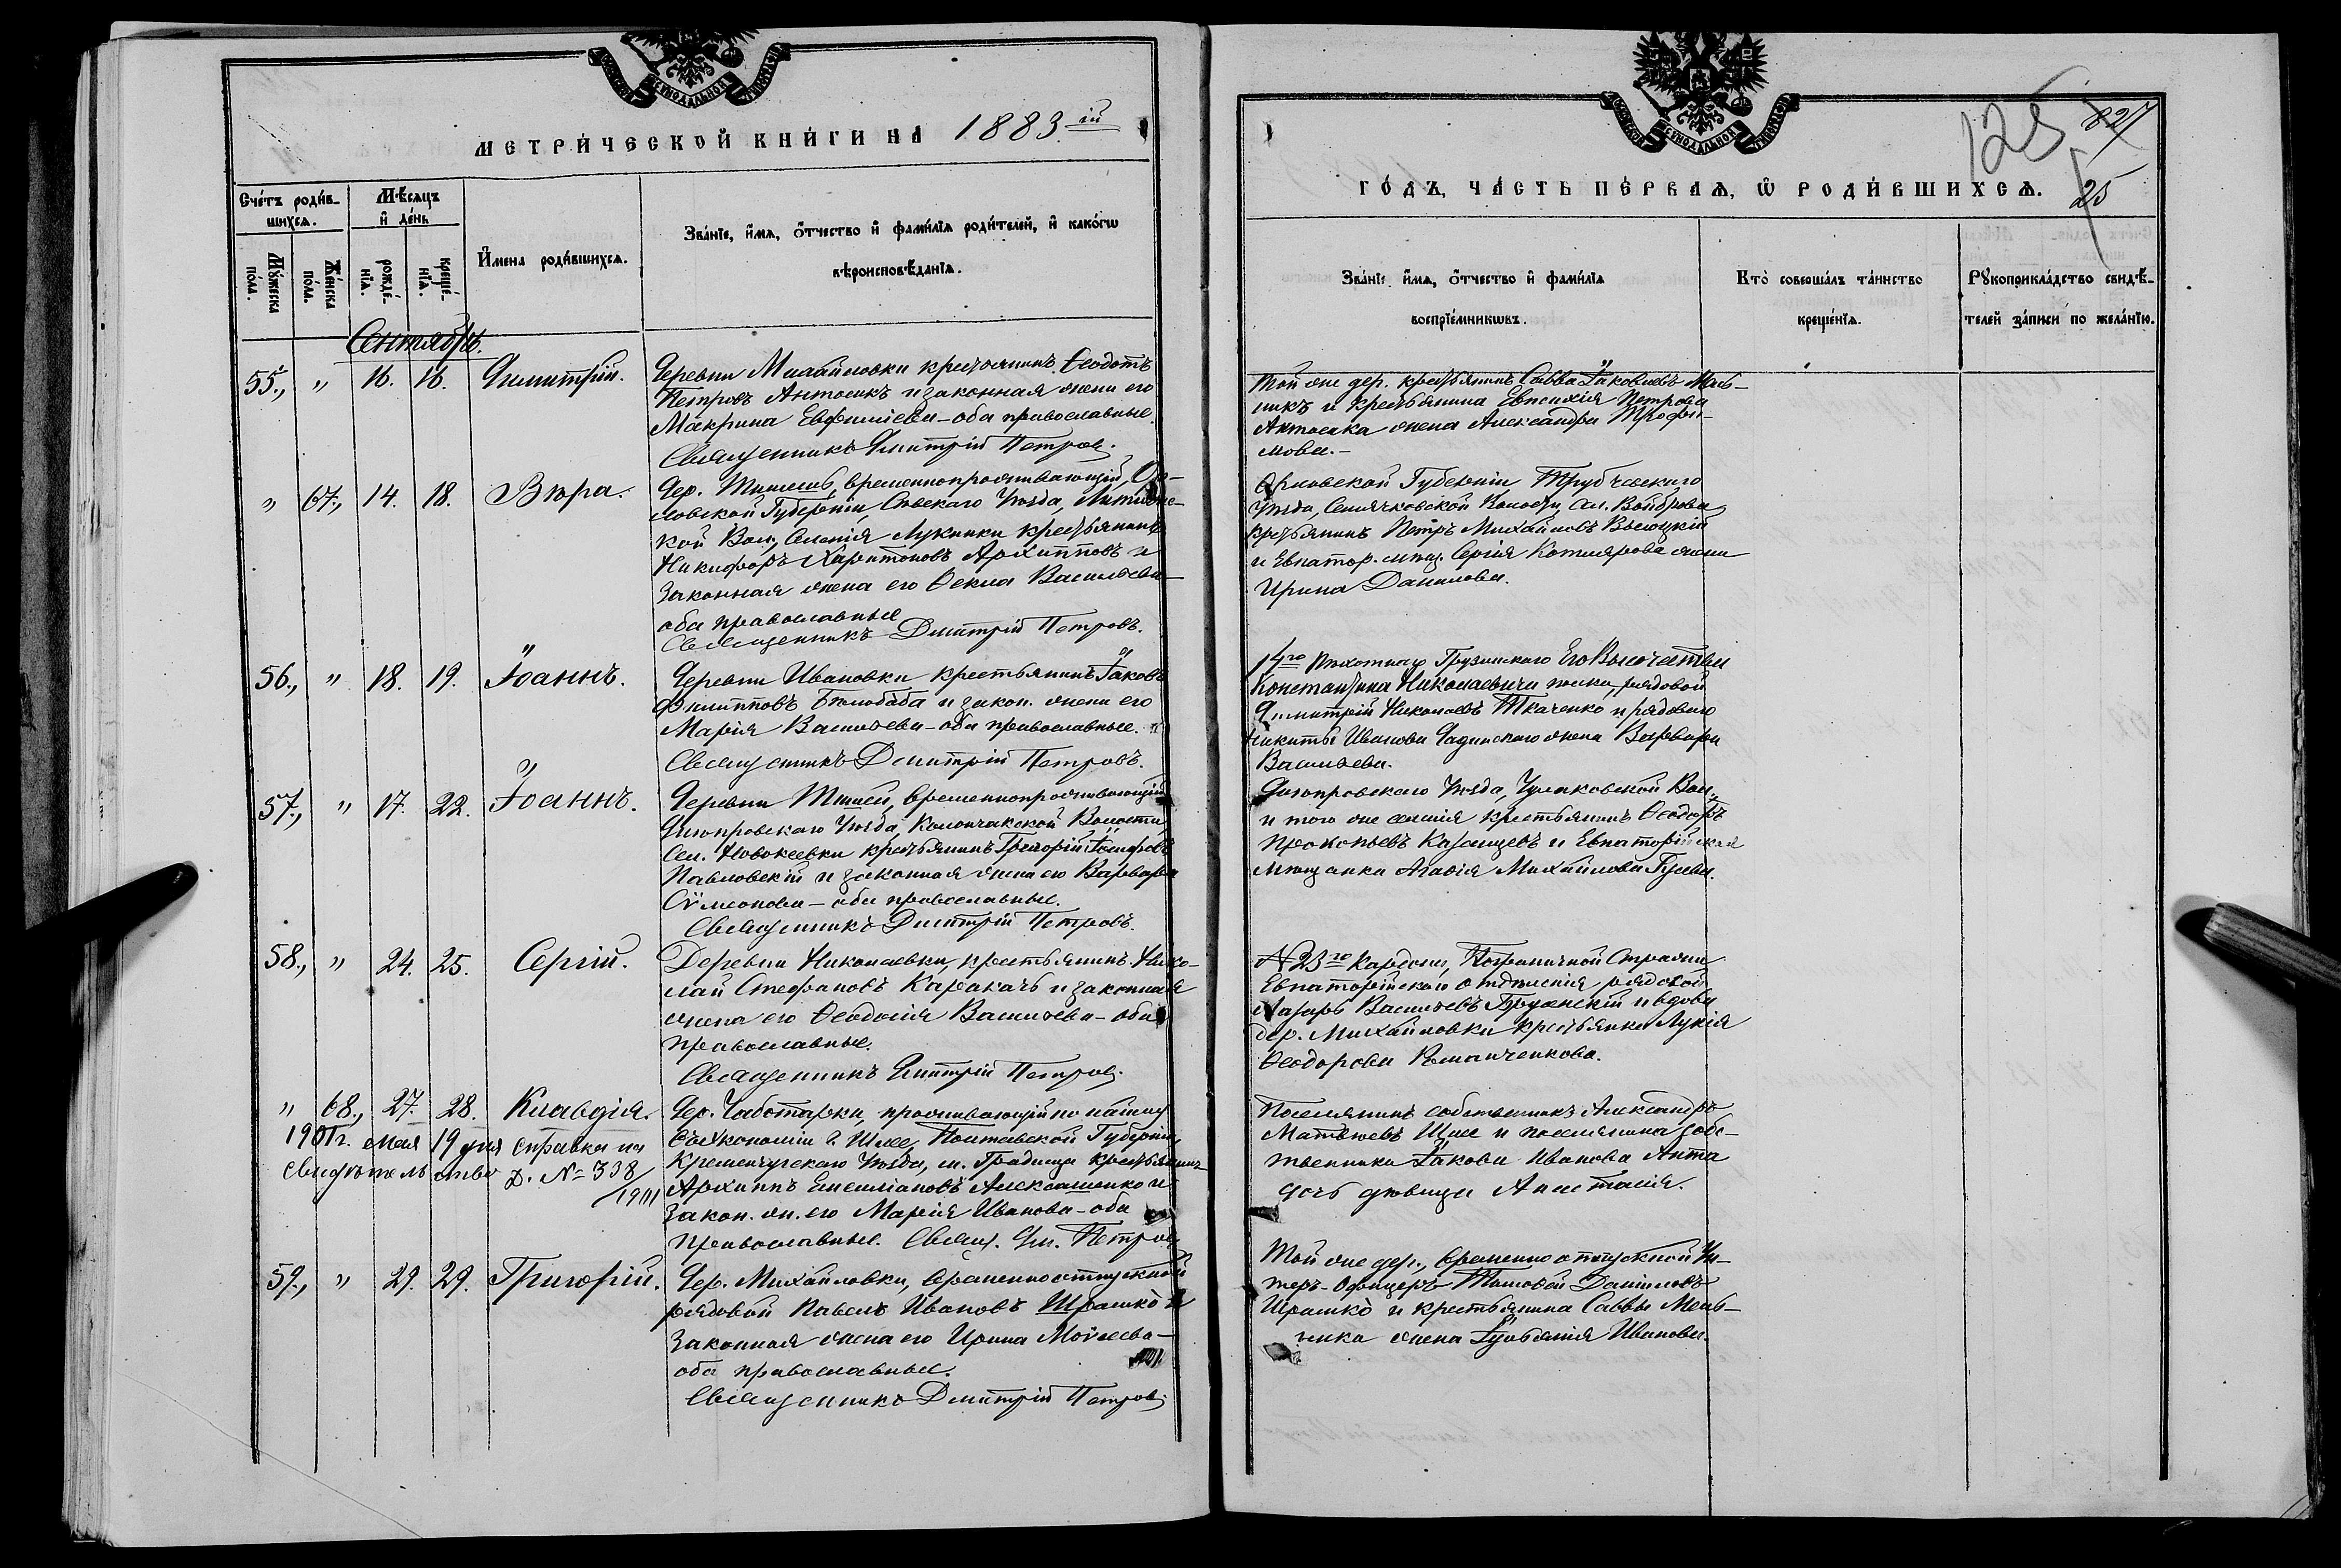 МЕТРИ́ЧЕСКОЙ КНИ́ГИ НА 1883.ій
Сче́тъ роди́в-
шихсѧ.
Мѣ́сѧцъ
и҆ де́нь
И҆мена̀ роди́вшихсѧ.
Зва́нїе, и҆́мѧ, ѻ҆́тчество и҆ фами́лїѧ роди́телей, и҆ како́гѡ
вѣроисповѣ́данїѧ.
Мꙋ́жеска
по́ла.
Же́нска
по́ла.
рожде́-
нїѧ.
креще́-
нїѧ.
Сентябрь.
55., " 16. 16. Димитрій.
Деревни Михайловки крестьянинъ Ѳеодотъ
Петровъ Антосикъ и законная жена его
Макрина Евфиміева – оба православные.
Священникъ Димитрій Петровъ.
" 67., 14. 18. Вѣра.
Дер. временнопроживающій Ор-
ловской Губерніи, Сѣвскаго Уѣзда,
кой Вол., Селенія Лукинки крестьянинъ
Никифоръ Харитоновъ Архипповъ и
законная жена его Ѳекла Васильева –
оба православные
Священникъ Дмитрій Петровъ.
56., " 18. 19. Іоаннъ.
Деревни Ивановки крестьянинъ Іаковъ
Филипповъ Бѣлобаба и закон. жена его
Марія Васильева – оба православные.
Священникъ Дмитрій Петровъ.
57., " 17. 22. Іоаннъ.
Деревни временнопроживающій
Днѣпровскаго Уѣзда, Каланчакской Волости
Сел. крестьянинъ Григорій
Павловскій и законная жена его Варвара
Сѷмеонова – оба православные.
Священникъ Дмитрій Петровъ.
58., " 24. 25. Сергій.
Деревни Николаевки, крестьянинъ Нико-
лай Стефановъ Каракачъ и законная
жена его Ѳеодосія Васильева – оба
православные.
Священникъ Дмитрій Петровъ.
" 68., 27. 28. Клавдія.
1901 г. мая 19 дня справка на
свидѣтельство Д. № 338/1901
Дер. Чаботарки, проживающій по найму
въ экономіи Шлее, Полтавской Губерніи,
Кременчугскаго Уѣзда, м. Градижа крестьянинъ
Архиппъ Емеліановъ Алексашенко и
закон. жен. его Марія Иванова – оба
православные. Свящ. Дм. Петровъ
59., " 29. 29. Григорій.
Дер. Михайловки, временноотпускной
рядовой Павелъ Ивановъ Ирашко и
законная жена его Ирина Моѵсеева –
оба православные.
Священникъ Дмитрій Петровъ
ГО́ДЪ, ЧА́СТЬ ПЕ́РВАѦ, Ѡ҆ РОДИ́ВШИХСѦ.
125
827
25
Зва́нїе и҆́мѧ, ѻ҆́тчество и҆ фами́лїѧ
воспрїе́мникѡвъ.
Кто̀ соверша́лъ та́инство
креще́нїѧ.
Рꙋкоприкла́дство свидѣ́-
телей за́писи по жела́нїю.
Той же дер. крестьянинъ Савва Іаковлевъ Мель-
никъ и крестьянина Евпсихія Петрова
Антосика жена Александра Трофи-
мова. –
Орловской Губерніи Трубчевскаго
Уѣзда, Селячковской Волости, сл.
крестьянинъ Петръ Михайловъ Высоцкій
и Евпатор. мѣщ. Сергія Котлярова жена
Ирина Данилова.
14го Пѣхотнаго Грузинскаго Его Высочества
Константина Николаевича полка, рядовой
Димитрій Николаевъ Ткаченко и рядового
Никиты Иванова жена Варвара
Васильева.
Днѣпровскаго Уѣзда, Чулаковской Вол.,
и того же селенія крестьянинъ Ѳеодоръ
Прокопьевъ Казанцевъ и Евпаторійская
мѣщанка Агаѳія Михайлова Гусева.
№ 23го Кардона, Пограничной Стражи
Евпаторійскаго отдѣленія рядовой
Лазарь Васильевъ и вдова
дер. Михайловки крестьянка Лукія
Ѳеодорова Романченкова.
Поселянинъ собственникъ Александръ
Матвѣевъ Шлее и поселянина собс-
твенника Іакова Иванова Анта
дочь дѣвица Анастасія.
Той же дер., временноотпускной Ун-
теръ-Офицеръ Тимоѳей Даниловъ
Ирашко и крестьянина Саввы Мель-
ника жена Іуліанія Иванова.